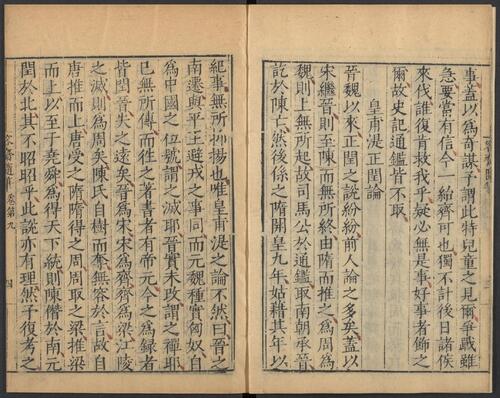 事蓋以為奇謀子謂此特兒童之見爾爭戰雖
急要當有信今一紿齊可也獨不計後日諸侯
來伐誰復肯救我乎疑必無是事好事者飾之
爾故史記通鑑皆不取
皇甫湜正閏論
晉魏以來正閏之說紛紛前人論之多矣蓋以
宋繼晉則至陳而無所終由隋而推之為周為
魏則上無所起故司馬公於通鑑取南朝承晉
訖於陳亡然後係之隋開皇九年姑藉其年以
紀事無所抑揚也唯皇甫湜之論不然曰晉之
南遷與平王避戎之事同而元魏種實匈奴自
為中國之位號謂之滅耶晉實未改謂之禪耶
已無所傳而往之著書者有帝元今之為錄者
皆閏晉失之遠矣晉為宋宋為齊齊為梁江陵
之滅則為周矣陳氏自樹而奪無容於言故自
唐推而上唐受之隋隋得之周周取之梁推梁
而上以至于堯舜為得天下統則陳僭於南元
閏於北其不昭昭乎此說亦有理然予復考之
容齋隨筆
卷第九
四